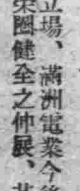 立場、滿洲電業今後
業圈健全之仲展、